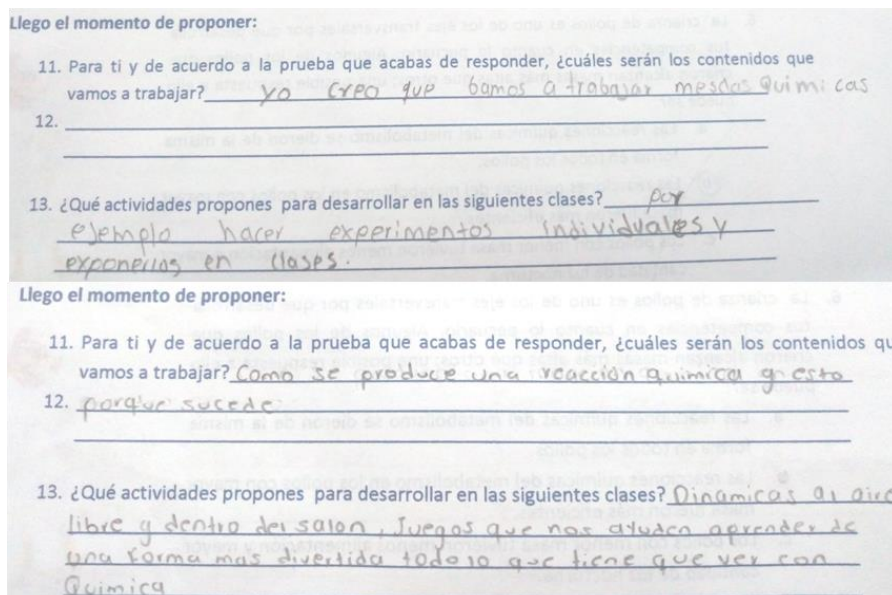 Llego el momento de proponer:
11. Para ti y de acuerdo a la prueba que acabas de responder, ¿cuáles serán los contenidos que
vamos a trabajar? yo creo que bamos a trabajar mesclas Quimicas
12.
13. ¿Qué actividades propones para desarrollar en las siguientes clases? por
ejemplo hacer experimentos individuales y
exponerlos en clases.
Llego el momento de proponer:
11. Para ti y de acuerdo a la prueba que acabas de responder, ¿cuáles serán los contenidos qu
vamos a trabajar? Como se produce una reacción quimica y esto
12. porque sucede
13. ¿Qué actividades propones para desarrollar en las siguientes clases? Dinamicas al aire
libre y dentro del salon, Juegos que nos ayuden aprender de
una forma mas divertida todo lo que tiene que ver con
Quimica